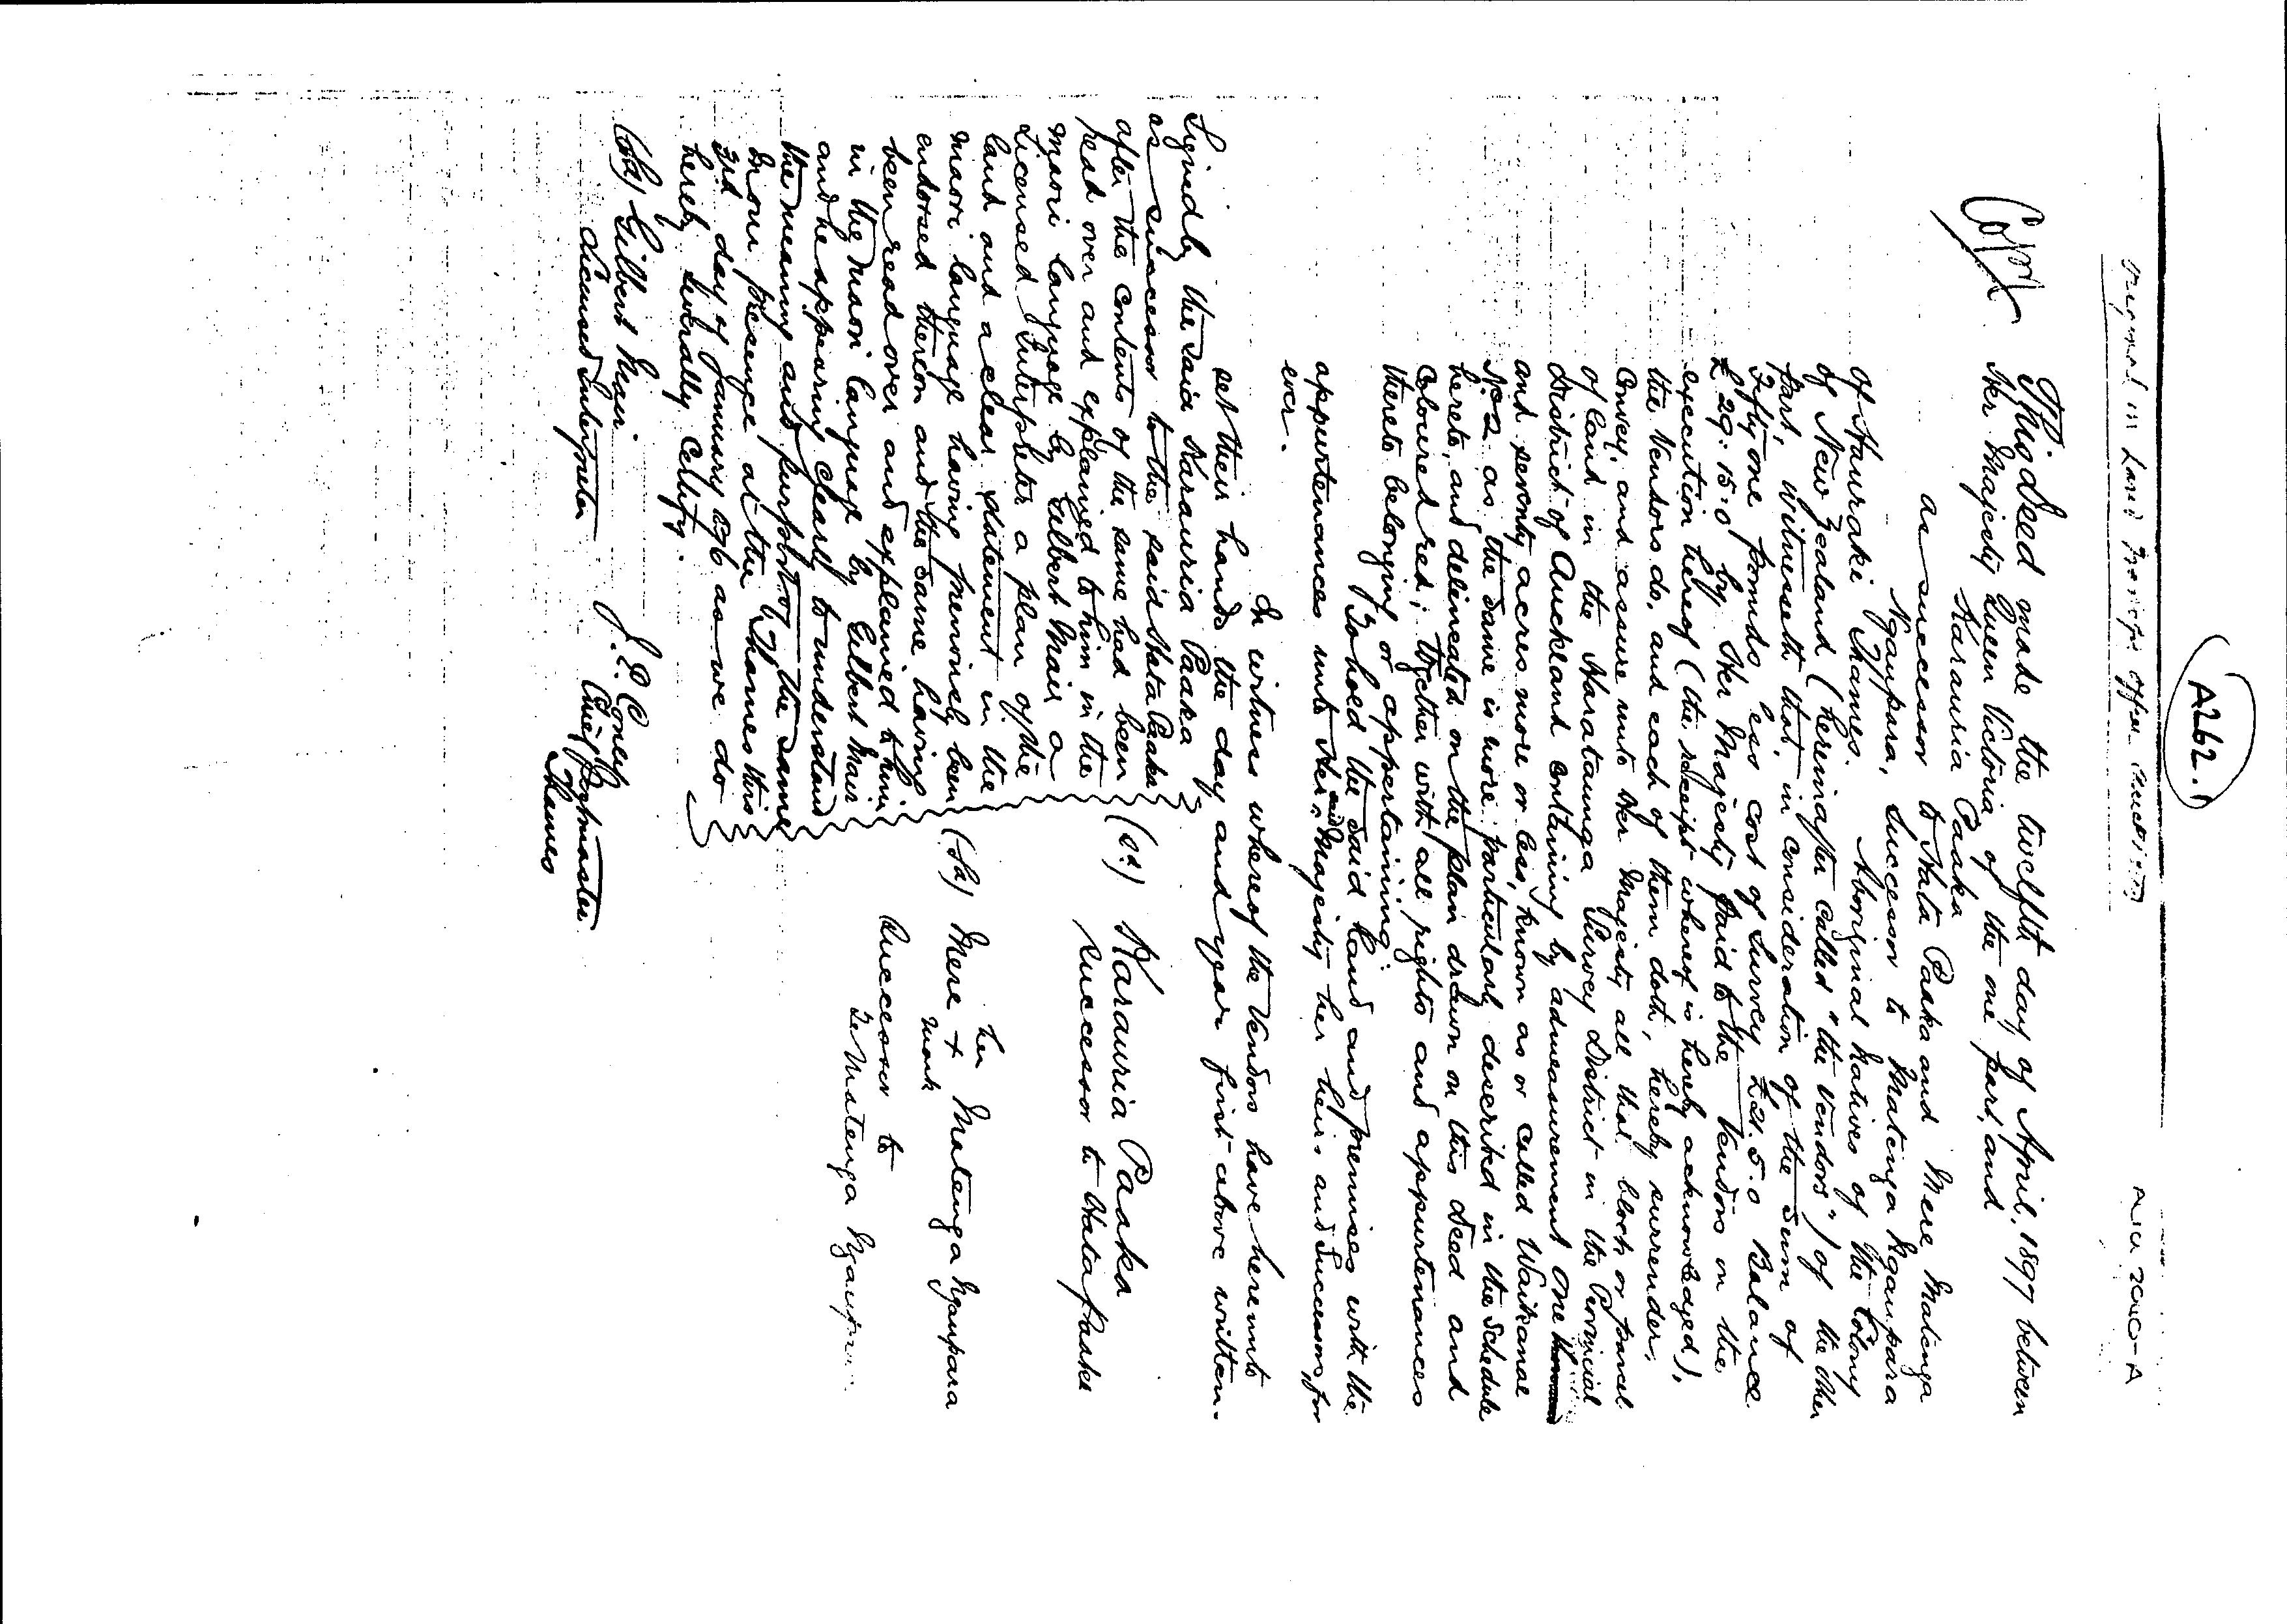 A262.1
Original in Land
AUC 2040-A
Copy
This Deed made the twelfth day of April, 1897 between
Her Majesty Queen Victoria of the one part, and
Karauria Paaka
as successor to Hata Paaka and Mere Matenga
Ngaupara, successor to Matenga Ngaupara
of Hauraki Thames. Aboriginal Natives of the Colony
of New Zealand (hereinafter called "the Vendors") of the other
part, witnesseth that, in consideration of the sum of
Fifty one pounds less cost of Survey £21.5.0 Balance
£29.15.0 by Her Majesty paid to the Vendors on the
execution hereof (the receipt whereof is hereby acknowledged),
the Vendors do, and each of them doth, hereby surrender,
convey, and assure unto Her Majesty all that block or parcel
of land in the Harataunga Survey District in the Provincial
District of Auckland containing by admeasurement one
and seventy acres more or less, known as or called Waikanae
No 2 as the same is more particularly described in the Schedule
hereto, and delineated on the plan drawn on this deed and
coloured red; together with all rights and appurtenances
thereto belonging or appertaining.
To hold the said land and premises with the
appurtenances unto Her said Majesty her heirs and Successors, for
ever.
In witness whereof the Vendors have hereunto
set their hands the day and year first above written.
Signed by the said Karauria Paaka
as successor to the said Hata Paaka
after the contents of the same had been
read over and explained to him in the
Maori language by Gilbert Mair a
Licensed Interpreter a plan of the
land and a clear statement in the
Maori language having previously been
endorsed thereon and the same having
been read over and explained to him
in the Maori language by Gilbert Mair
and he appearing clearly to understand
the meaning and purport of the same
in our presence at the Thames this
day of January as we do
hereby severally certify.
(sd) Karauria Paaka
successor to Hata Paaka
her
(sd) Mere + Matenga Ngaupara
mark
successor to
Te Matenga Ngaupara
(sd) Gilbert Mair
Licensed Interpreter
J. E. Coney
Chief Postmaster
Thames